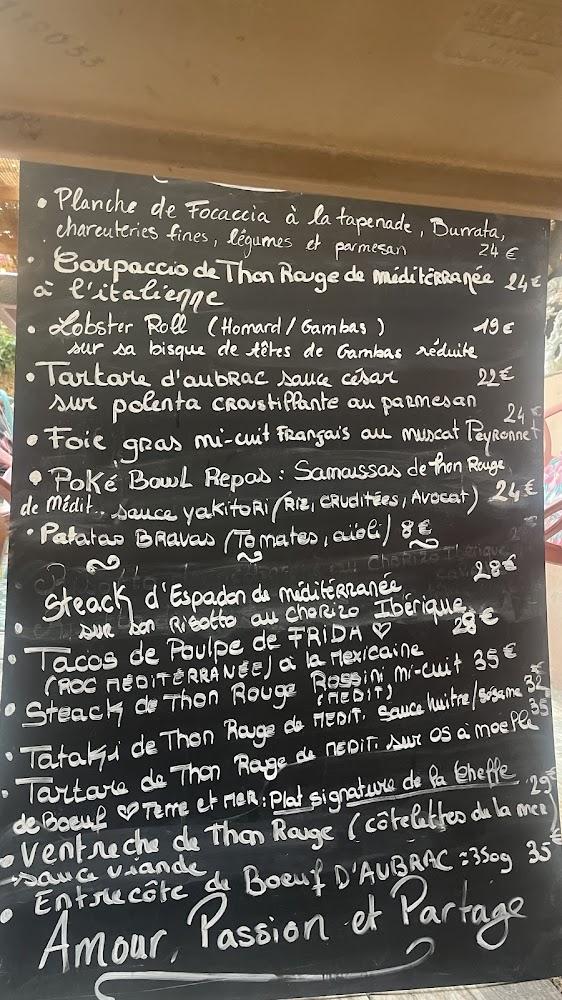 • Planche de Focaccia à la tapenade, Burrata,
charcuteries fines, légumes et parmesan 24€
• Carpaccio de Thon Rouge de méditérranée 24€
à l'italienne
• Lobster Roll (Homard/Gambas) 19€
sur sa bisque de têtes de Gambas réduite
• Tartare d'aubrac sauce césar 22€
sur polenta croustillante au parmesan
• Foie gras mi-cuit Français au muscat Peyronnet 24€
• Poké Bowl Repas: Samoussas de thon Rouge
de Médit.. sauce yakitori (Riz, cruditées, Avocat) 24€
• Patatas Bravas (Tomates, aioli) 8€
• Steack d'Espadon de méditérranée 28€
sur son Risotto au Chorizo Ibérique
• Tacos de Poulpe de FRIDA ♡ 28€
(ROC MÉDITÉRRANÉE) à la Mexicaine
• Steack de Thon Rouge Rossini mi-cuit 35€
(MEDIT)
• Tataki de Thon Rouge de MEDIT. Sauce huitre/sésame 32€
• Tartare de Thon Rouge de MEDIT. sur os à moelle 35
de Boeuf ♡ Terre et Mer: Plat signature de la Cheffe
• Ventreche de Thon Rouge (côtelettes de la mer) 29€
→ sauce viande
• Entrecôte de Boeuf D'AUBRAC =350g 35€
Amour, Passion et Partage